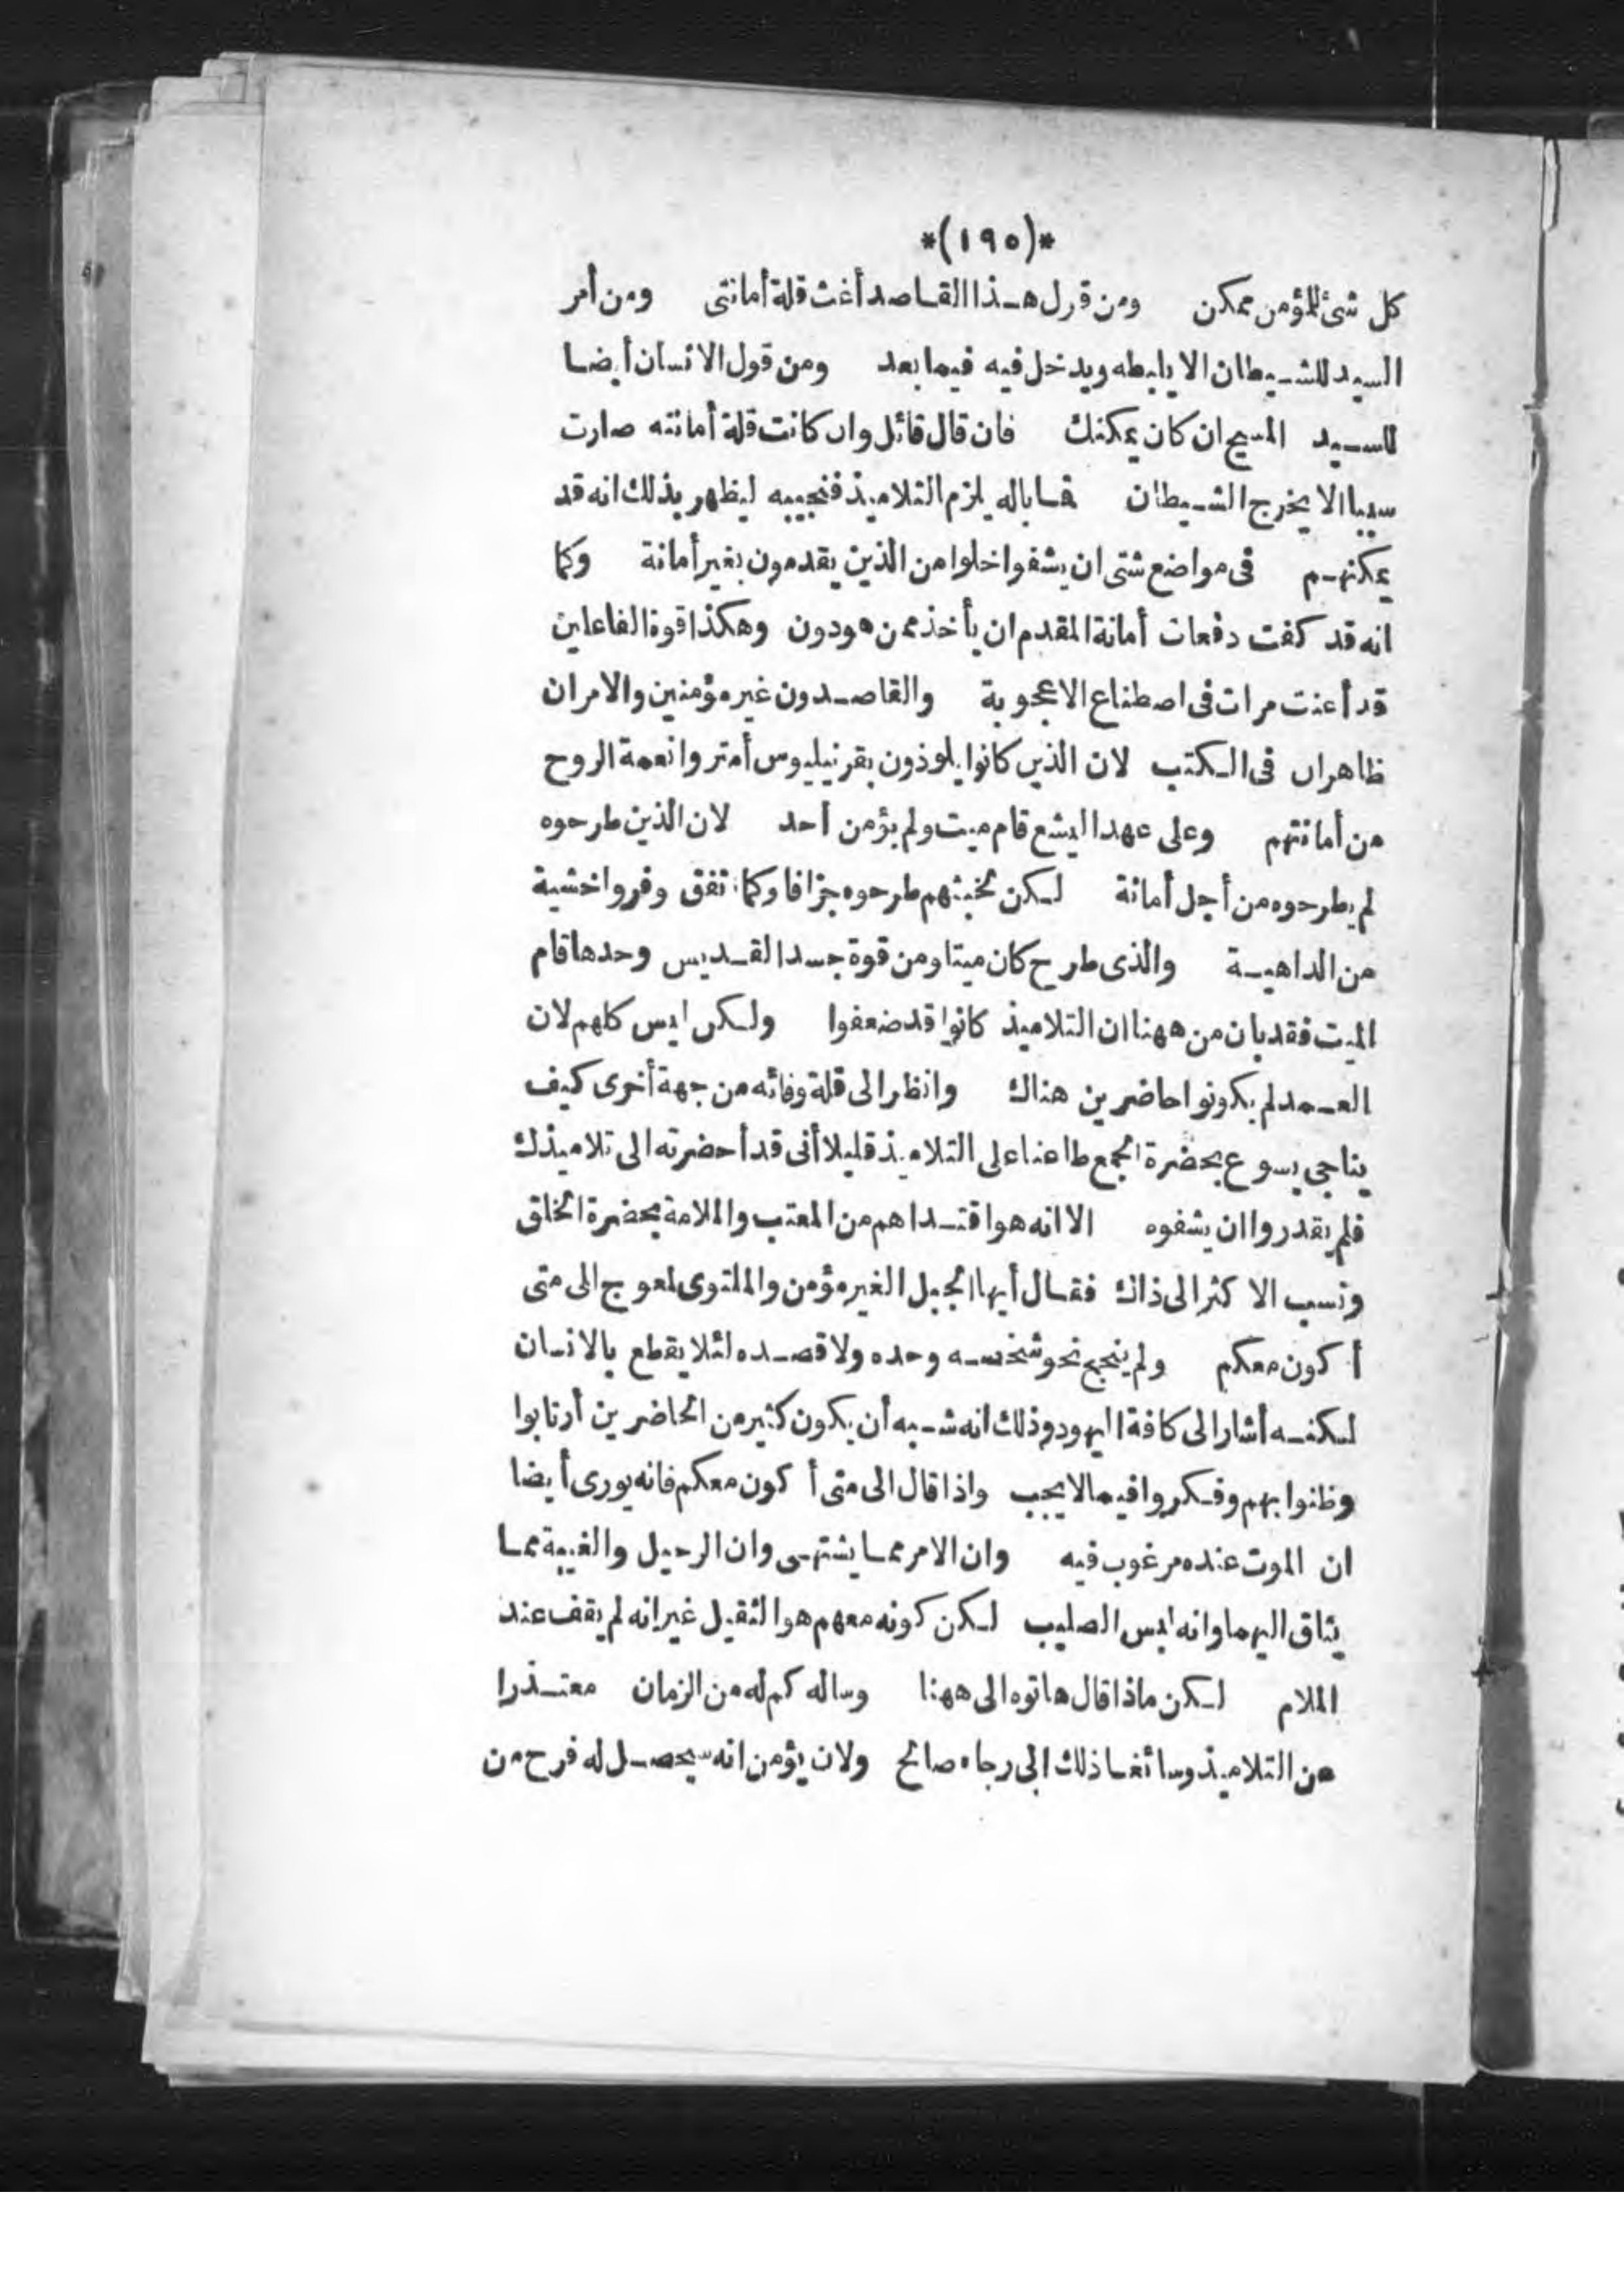 *(١٩٥)*
كل شئ للمؤمن ممكن ومن قول هذا القاصد أغث قلة أمانتى ومن أمر
السيد للشيطان الا يابطه ويدخل فيه فيما بعد ومن قول الانسان أيضا
للسيد المسيح ان كان يمكنك فان قال قائل وان كانت قلة أمانته صارت
سببا الا يخرج الشيطان فما باله يلزم التلاميذ فنجيبه ليظهر بذلك انه قد
يمكنهم فى مواضع شتى ان يشفوا خلوا من الذين يقدمون بغير أمانة وكما
انه قد كفت دفعات أمانة المقدم ان يأخذ ممن هو دون وهكذا قوة الفاعلين
قد أعنت مرات فى اصطناع الاعجوبة والقاصدون غير مؤمنين والامران
ظاهران فى الكتب لان الذين كانوا يلوذون بقرنيليوس أمتروا نعمة الروح
من أمانتهم وعلى عهد اليشع قام ميت ولم يؤمن أحد لان الذين طرحوه
لم يطرحوه من أجل أمانة لكن لخبثهم طرحوه جزافا وكما اتفق وفروا خشية
من الداهية والذى طرح كان ميتا ومن قوة جسد القديس وحدها قام
الميت فقد بان من ههنا ان التلاميذ كانوا قد ضعفوا ولكن ليس كلهم لان
العمد لم يكونوا حاضرين هناك وانظر الى قلة وفائه من جهة أخرى كيف
يناجى يسوع بحضرة الجمع طاعنا على التلاميذ قليلا أنى قد أحضرته الى تلاميذك
فلم يقدروا ان يشفوه الا انه هو افتداهم من المعتب والملامة بحضرة الخلق
ونسب الا كثر الى ذاك فقال أيها الجيل الغير مؤمن والملتوى لمعوج الى متى
أ كون معكم ولم ينجح نحو شخصه وحده ولا قصده لئلا يقطع بالانسان
لكنه أشار الى كافة اليهود وذلك انه شبه أن يكون كثير من الحاضرين أرتابوا
وظنوا بهم وفكروا فيما لا يجب واذا قال الى متى أ كون معكم فانه يورى أيضا
ان الموت عنده مرغوب فيه وان الامر مما يشتهى وان الرحيل والغيبة مما
يثاق اليهما وانه ليس الصليب لكن كونه معهم هو الثقيل غير انه لم يقف عند
الملام لكن ماذا قال هاتوه الى ههنا وساله كم له من الزمان معتذرا
من التلاميذ وسائغا ذلك الى رجاء صالح ولان يؤمن انه سيحصل له فرح من